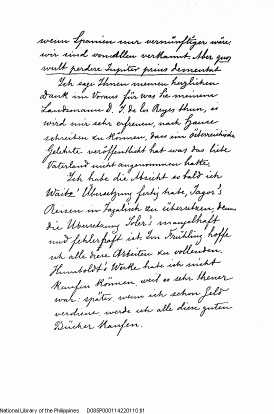 wenn Spanien nur vernünftiger wäre;
wir sind von allen verkannt. Aber quos
vult perdere Jupiter prius dementat.
Ich sage Ihnen meinen herzlichen
Dank im Voraus für was Sie meinem
Landsmann D. I. de los Reyes thun, es
wird mir sehr erfreuen, nach Hause
schreiben zu können, dass ein österreichische
Gelehrte veröffentlicht hat was das liebe
Vaterland nicht angenommen hatte.
Ich habe die Absicht so bald ich
Waitz' Übersetzung fertig habe, Jagor's
Reisen in Tagalisch zu übersetzen, denn
die Übersetzung Soler's mangelhaft
und fehlerhaft ist. Im Frühling, hoffe
ich alle diese Arbeiten zu vollenden.
Humboldt's Werke habe ich nicht
kaufen können, weil es sehr theuer
war: später wenn ich schon Geld
verdiene werde ich alle diese guten
Bücher kaufen.
National Library of the Philippines